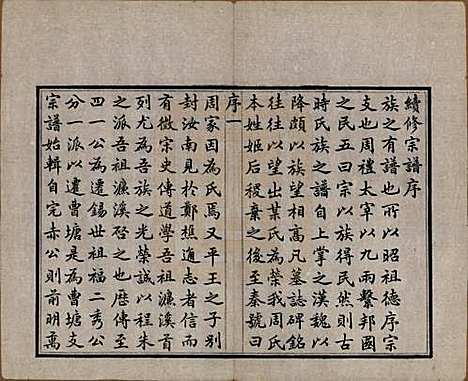 續修宗譜序
族之有譜也所以昭祖德序宗
支也周禮太宰以九兩繫邦國
之民五曰宗以族得民然則古
時氏族之譜自上掌之漢魏以
降頗以族望相高凡墓誌碑銘
往往以望出某氏為榮我周氏
本姓姬后稷棄之後至秦號曰
序一
周家因為氏焉又平王之子別
封汝南見於鄭樵通志者周氏
有徵宗史傳道學吾祖濂溪首
列尤為吾族之光榮誠以程朱
之派吾祖濂溪啓之也歷傳至
四一公為遷錫世祖福二秀公
分一派以遷曹塘是為曹塘支
宗譜始輯自完赤公則前明萬